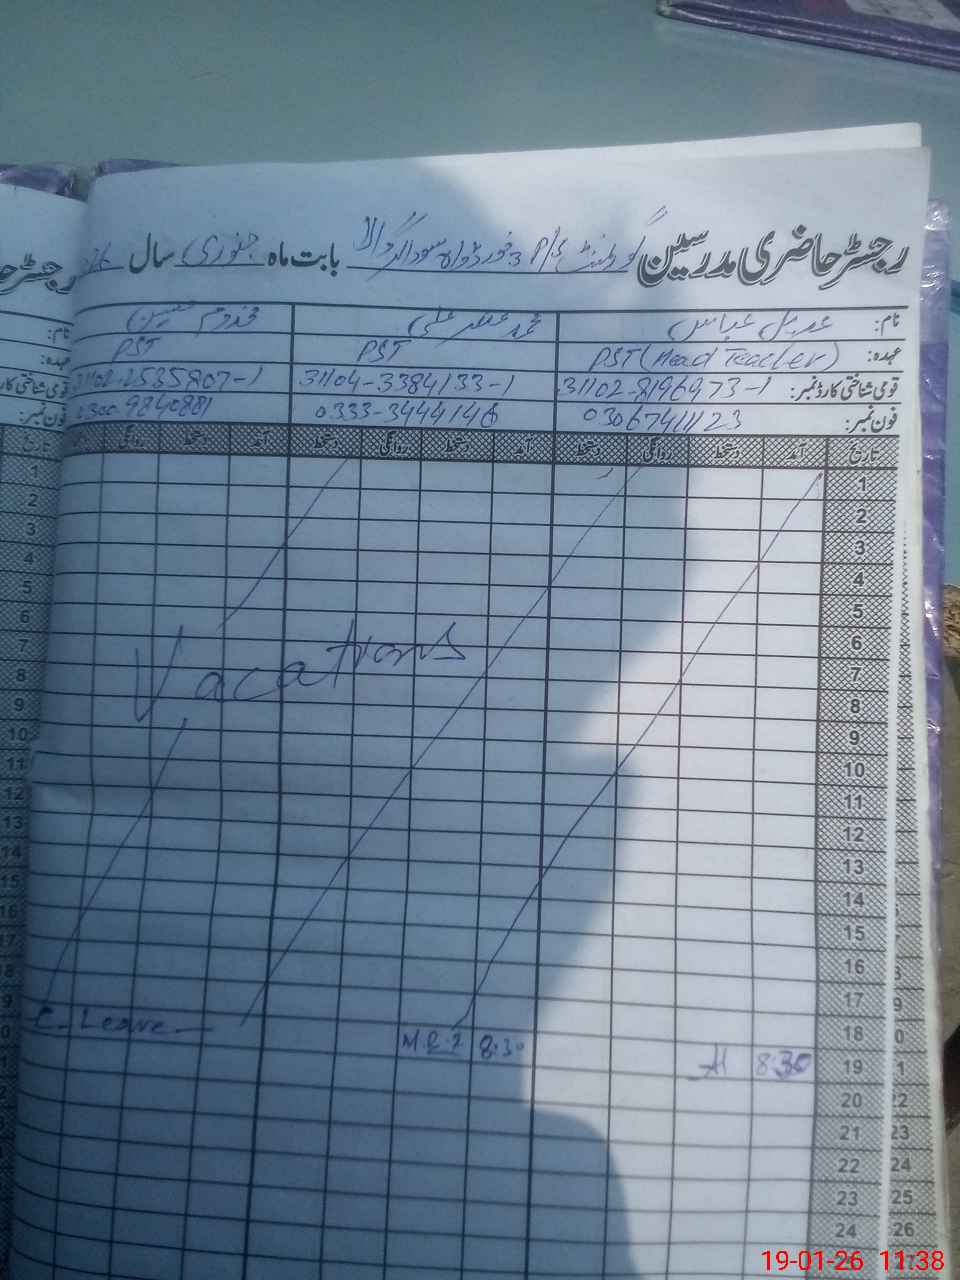 رجسٹر حاضری مدرسین گورنمنٹ P/S بابت ماہ جنوری سال 26
نام: عدیل عباس محمد علی مخدوم
عہدہ: PST (Head Teacher) PST PST
قومی شناختی کارڈ نمبر: 31102-8196473-1 31104-3384133-1 31102-2535807-1
فون نمبر: 03067411123 0333-3444146 0300-9840881
تاریخ آمد دستخط روانگی دستخط آمد دستخط روانگی دستخط آمد دستخط روانگی
1
2
3
4
5
6
Vacations
7
8
9
10
11
12
13
14
15
16
17
18
C-Leave 8:30 8:30 19
20
21
22
23
24
19-01-26 11:38